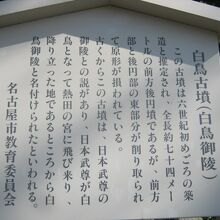 白鳥古墳（白鳥御陵）
この古墳は六世紀初めごろの築
造と推定され、全長約七十四メー
トルの前方後円墳であるが、前方
部と後円部の東部分が削り取られ
て原形が損われている。
古くからこの古墳は、日本武尊の
御陵との説があり、日本武尊が白
鳥となって熱田の宮に飛び来り、
降り立った地であるところから白
鳥御陵と名付けられたといわれる。
名古屋市教育委員会